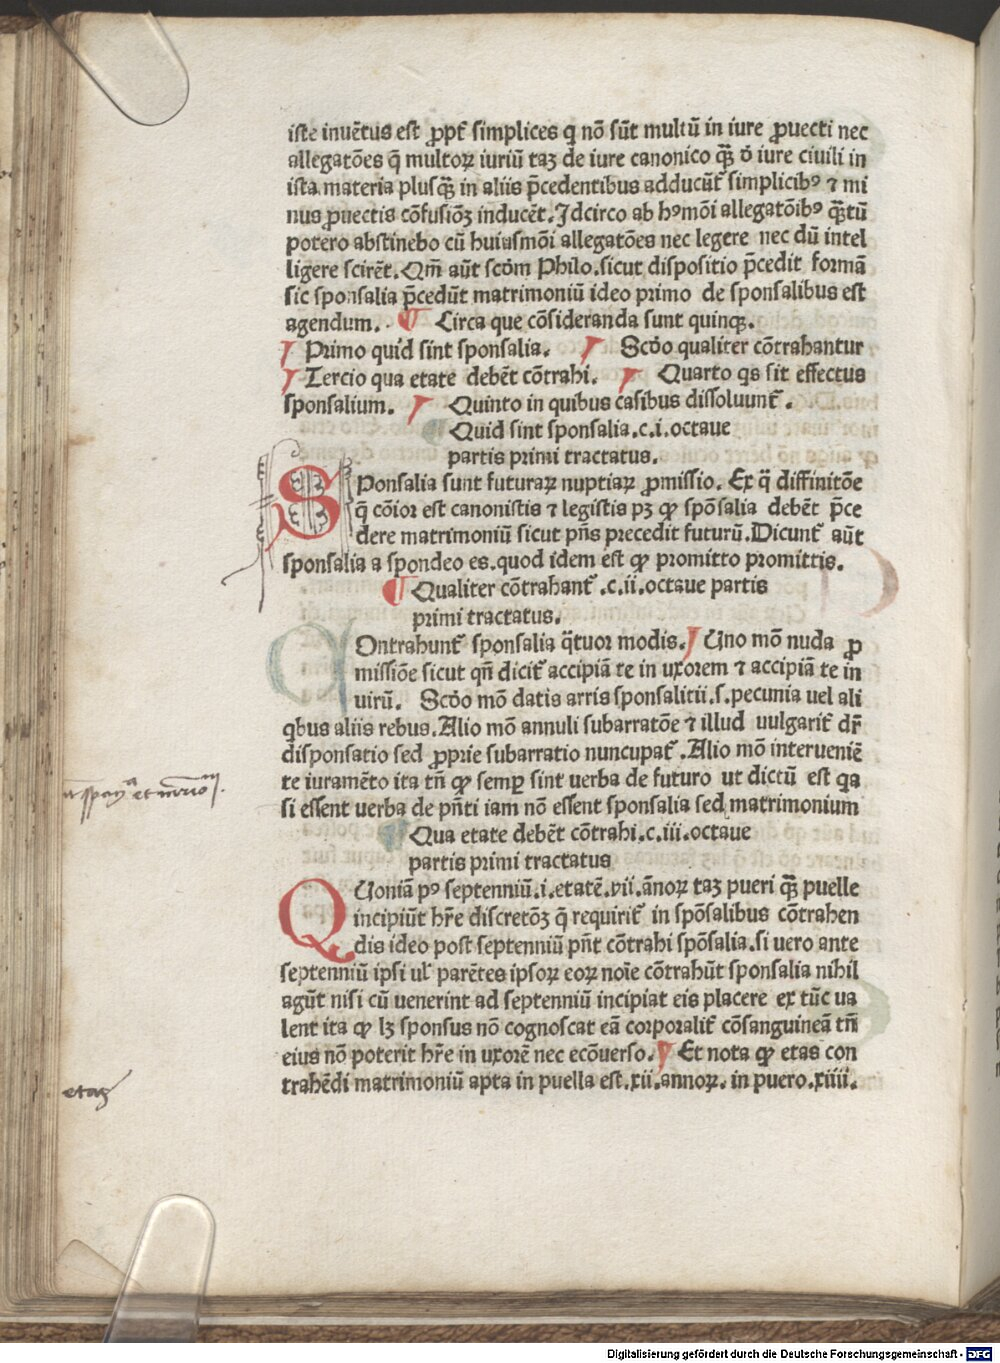 iste inuētus est ꝓpt̄ simplices q nō sūt multū in iure ꝓuecti nec
allegatōes q̄ multoꝝ iuriū taꝫ de iure canonico qꝫ̄ ō iure ciuili in
ista materia plusqꝫ̄ in aliis p̄cedentibus adducūt̄ simplicibꝰ ⁊ mi
nus ꝓuectis cōfusiōꝫ inducēt. Idcirco ab hꝰmōi allegatōibꝰ qꝫ̄tū
potero abstinebo cū huiusmōi allegatōes nec legere nec dū intel
ligere scirēt. Qm̄ aūt scōm Philo. sicut dispositio p̄cedit formā
sic sponsalia p̄cedūt matrimoniū ideo primo de sponsalibus est
agendum. ¶ Circa que cōsideranda sunt quinqꝫ.
Primo quid sint sponsalia. Scōo qualiter cōtrahantur
Tercio qua etate debēt cōtrahi. Quarto qs sit effectus
sponsalium. Quinto in quibus casibus dissoluunt̄.
Quid sint sponsalia. c. i. octaue
partis primi tractatus.
SPonsalia sunt futuraꝝ nuptiaꝝ ꝓmissio. Ex q̄ diffinitōe
q̄ cōior est canonistis ⁊ legistis pꝫ ꝙ spōsalia debēt p̄ce
dere matrimoniū sicut pn̄s precedit futurū. Dicunt̄ aūt
sponsalia a spondeo es. quod idem est ꝙ promitto promittis.
¶ Qualiter cōtrahant̄. c. ii. octaue partis
primi tractatus.
COntrahunt̄ sponsalia q̄tuor modis. Uno mō nuda ꝓ
missiōe sicut qn̄ dicit̄ accipiā te in uxorem ⁊ accipiā te in
uirū. Scōo mō datis arris sponsalitii. s. pecunia uel ali
qbus aliis rebus. Alio mō annuli subarratōe ⁊ illud uulgarit̄ dr̄
disponsatio sed ꝓprie subarratio nuncupat̄. Alio mō interueniē
te iuramēto ita tn̄ ꝙ semꝑ sint uerba de futuro ut dictū est qa
si essent uerba de pn̄ti iam nō essent sponsalia sed matrimonium
Qua etate debēt cōtrahi. c. iii. octaue
partis primi tractatus
QUoniā pꝰ septenniū. i. etatē. vii. ānoꝝ taꝫ pueri qꝫ̄ puelle
incipiūt hr̄e discretōꝫ q̄ requirit̄ in spōsalibus cōtrahen
dis ideo post septenniū pn̄t cōtrahi spōsalia. si uero ante
septenniū ipsi ul̄ parētes ipsoꝝ eoꝝ noīe cōtrahūt sponsalia nihil
agūt nisi cū uenerint ad septenniū incipiat eis placere ex tūc ua
lent ita ꝙ lꝫ sponsus nō cognoscat eā corporalit̄ cōsanguineā tn̄
eius nō poterit hr̄e in uxorē nec ecōuerso. Et nota ꝙ etas con
trahēdi matrimoniū apta in puella est. xii. annoꝝ. in puero. xiiii.
etas
Digitalisierung gefördert durch die Deutsche Forschungsgemeinschaft - DFG